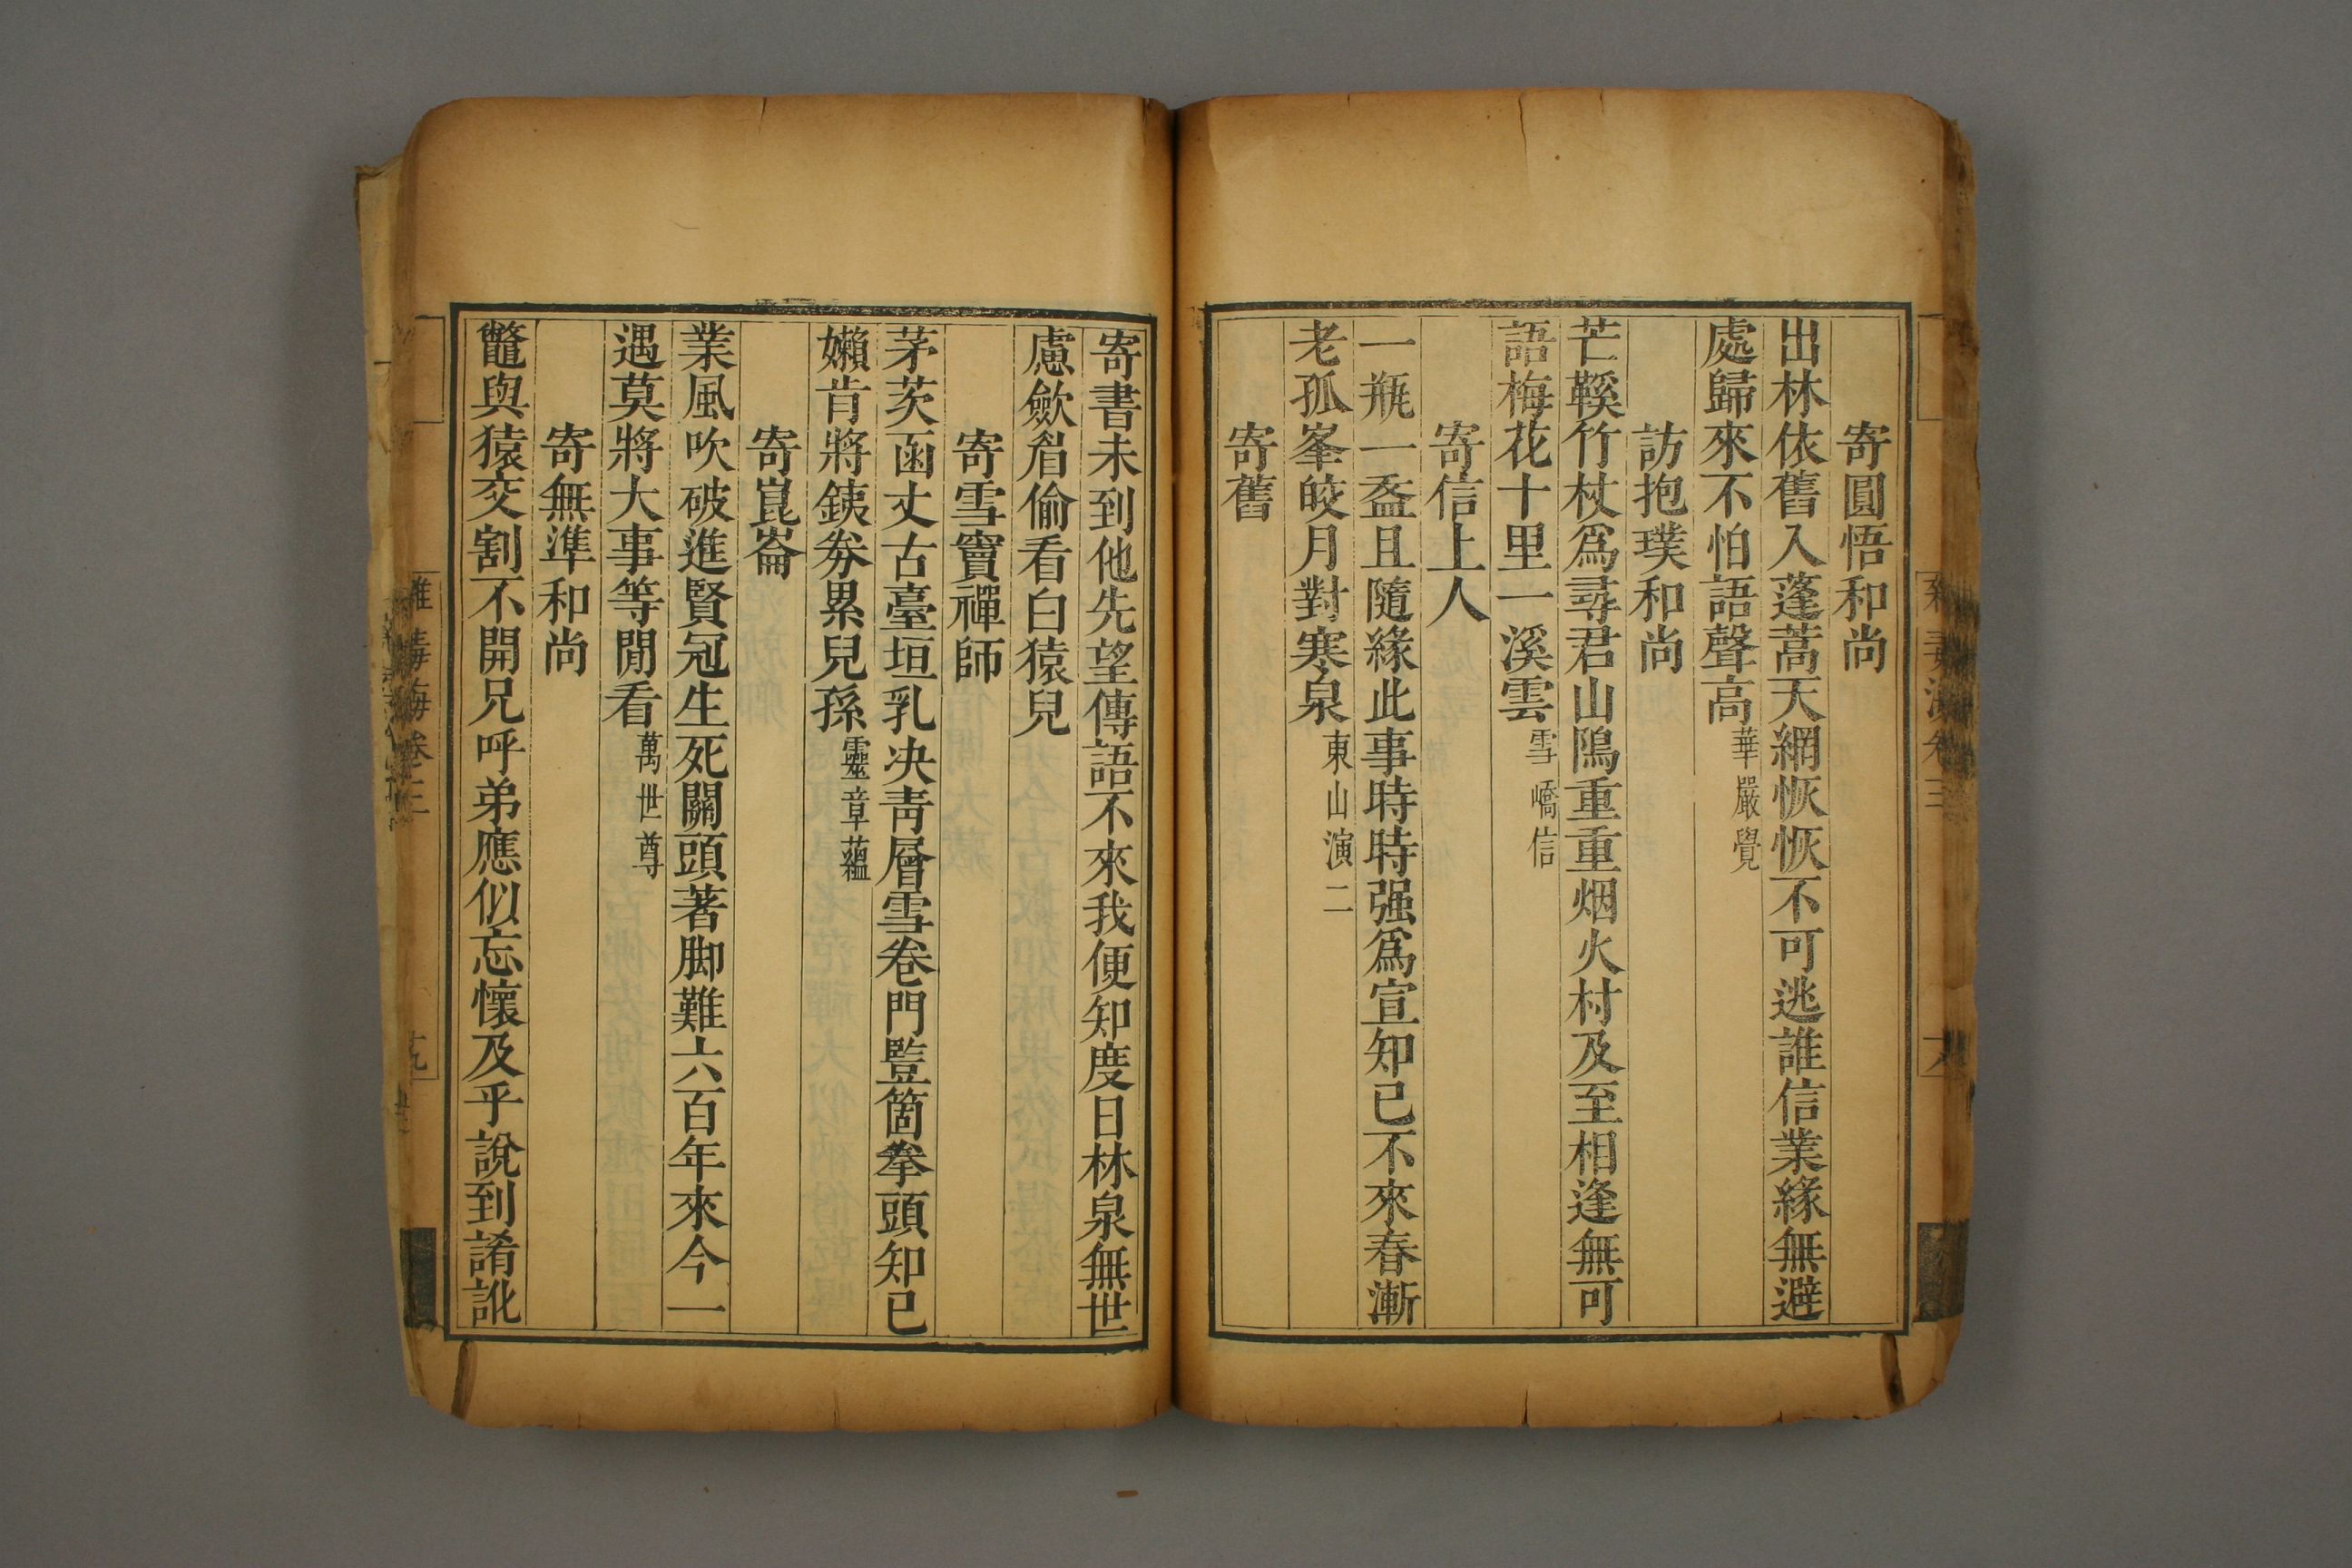 寄圓悟和尚
出林依舊入蓬蒿天網恢恢不可逃誰信業緣無避
處歸來不怕語聲高 華嚴覺
訪抱璞和尚
芒鞵竹杖爲尋君山隝重重烟火村及至相逢無可
語梅花十里一溪雲 雪嶠信
寄信上人
一瓶一盔且隨緣此事時時强爲宣知已不來春漸
老孤峯皎月對寒泉 東山演二
寄舊
寄書未到他先望傳語不來我便知度日林泉無世
慮歛眉偷看白猿兒
寄雪竇禪師
茅茨函丈古臺垣乳決靑層雪卷門豎箇拳頭知已
嬾肯將鉄劵累兒孫 靈章蘊
寄崑崙
業風吹破進賢冠生死關頭著脚難六百年來今一
遇莫將大事等閒看 萬世尊
寄無準和尚
鼈與猿交割不開兄呼弟應似忘懷及乎說到誵訛
雜毒海卷三